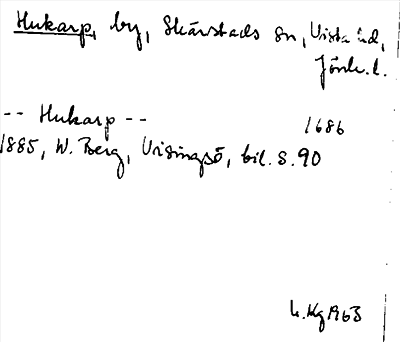 Hukarp, by, Skärstads sn, Vista hd,
Jönk. l.
-- Hukarp -- 1686
1885, W. Berg, Visingsö, bil. S. 90
h. Kg 1963